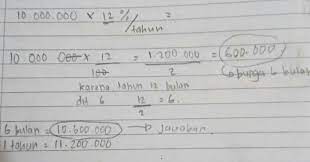 10.000.000 × 12 %/tahun =
10.000 000 × 12/100 = 1.200 000/2 = 600.000
(bunga 6 bulan
karena tahun 12 bulan
dit 6 12/2 = 6.
6 bulan = 10.600.000 → jawaban.
1 tahun = 11.200.000